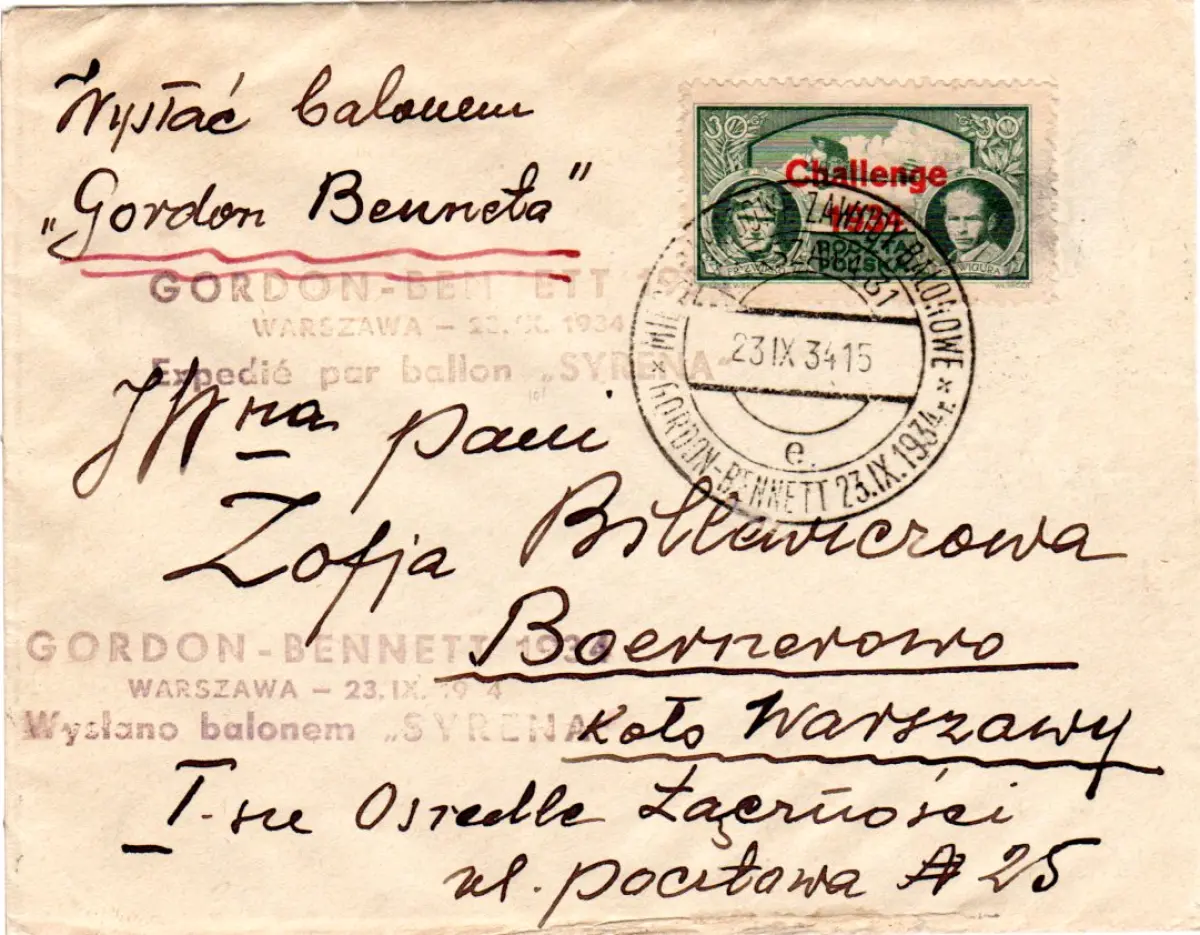 Wysłać balonem
„Gordon Benneta”
Challenge
1934
WIGURA
GORDON-BENNETT 19
WARSZAWA – 23.IX. 1934
Expedié par ballon „SYRENA”
ZAWODY BALONOWE
WARSZAWA
23 IX 34 15
e.
* GORDON-BENNETT 23.IX.1934 r. *
JWna pani
Zofja Billewiczowa
Boernerowo
GORDON-BENNETT 1934
WARSZAWA – 23.IX. 19 4
Wysłano balonem „SYRENA
koło Warszawy
I-sze Osiedle Łączności
ul. pocztowa № 25